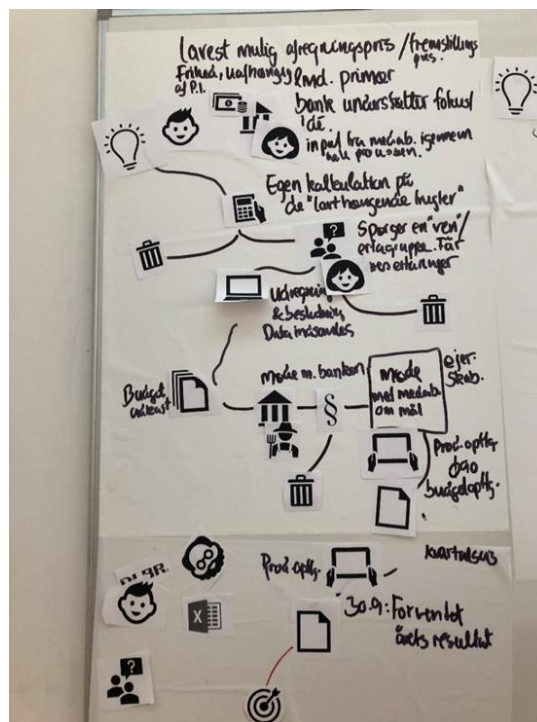 lavest mulig afregningspris / fremstillings
pris.
Frihed, uafhængig
af P.I.
lmd. primær
bank understøtter fokus
i de.
input fra medab. igennem
hele processen.
Egen kalkulation på
de "lavthængende frugter"
Spørger en "ven"/
erfagruppe. Får
erfaringer
Udregning
& beslutning
Data indsendes
Budget
Møde m. banken
§
Møde
med medarb.
om mål
ejer-
skab.
Prod. opflg.
og
budgetopflg.
Prod. opflg.
kvartalsvis
X
30.9: Forventet
årets resultat